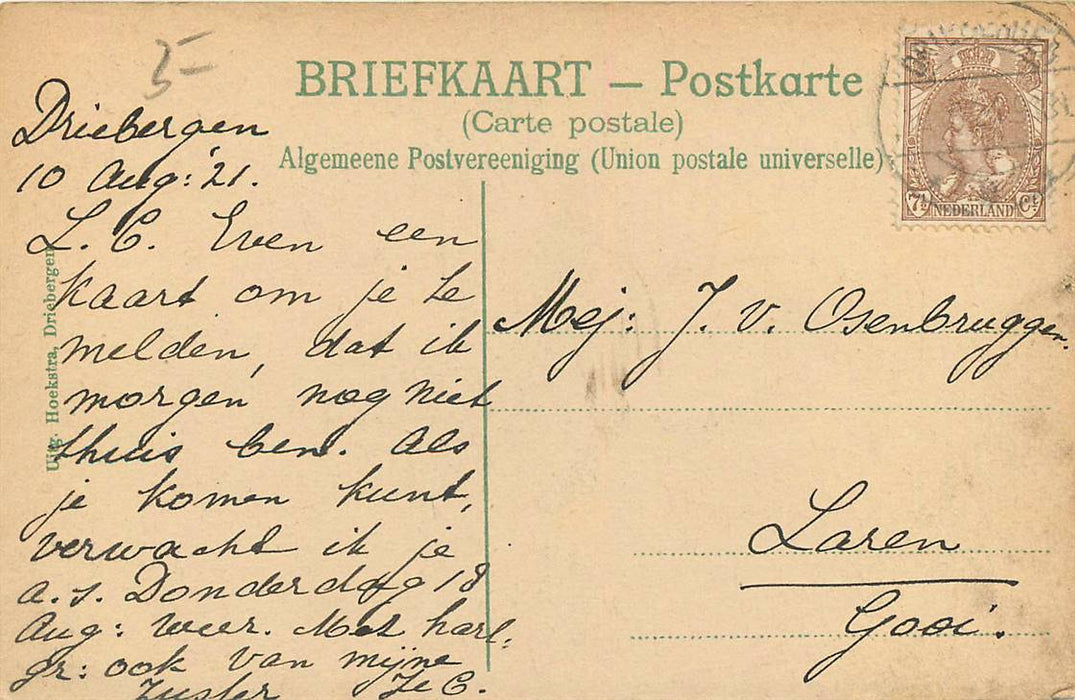 5-
BRIEFKAART – Postkarte
(Carte postale)
Algemeene Postvereeniging (Union postale universelle)
7½ NEDERLAND Ct
Driebergen
10 Aug: '21.
L. C. Even een
kaart om je te
melden, dat ik
morgen nog niet
thuis ben. Als
je komen kunt,
verwacht ik je
a.s. Donderdag 18
Aug: weer. Met hartl:
gr: ook van mijne
zuster Je C.
Uitg. Hoekstra, Driebergen
Mej: J. v. Osenbruggen.
Laren
Gooi.